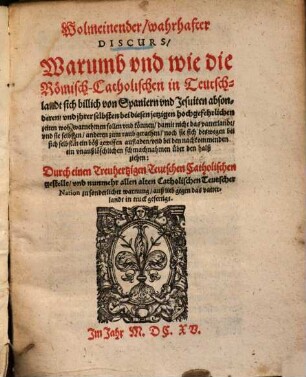 Wolmeinender/wahrhafter
DISCURS/
Warumb vnd wie die
Römisch-Catholischen in Teutsch-
lande sich billich von Spaniern vnd Jesuiten abson-
deren/ vnd jhrer selbsten bei diesen jezigen hochgefehrlichen
zeiten wohl warnehmen sollen vnd können/ damit nicht das vaterland/
vnd sie selbsten/ anderen zum raub gerathen/ noch sie sich deswegen bei
sich selbst ein böß gewissen aufladen/ vnd bei den nachkommenden
ein vnaußlöschlichen schmachnahmen über den halß
ziehen:
Durch einen Treuhertzigen Teutschen Catholischen
gestelle/ vnd nunmehr allen alten Catholischen Teutscher
Nation zu sonderlicher warnung/ auß lieb gegen das vatter-
lande in truck gefertigt.
Im Jahr M. DC. XV.